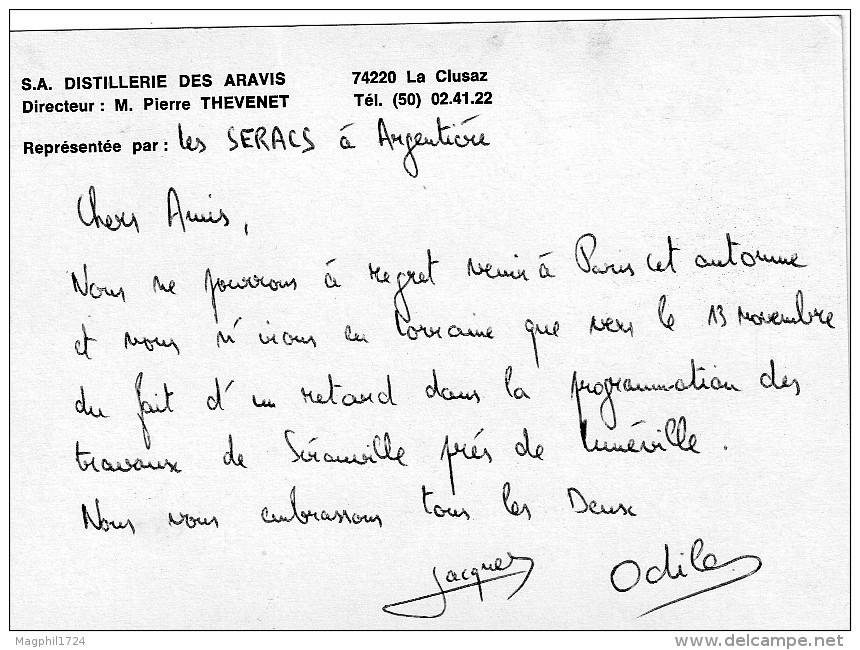 S.A. DISTILLERIE DES ARAVIS 74220 La Clusaz
Directeur : M. Pierre THEVENET Tél. (50) 02.41.22
Représentée par : Les SERACS à Argentière
Chers Amis,
Nous ne pourrons à regret venir à Paris cet automne
et nous n'irons en Lorraine que vers le 13 novembre
du fait d'un retard dans la programmation des
travaux de Séranville près de Lunéville.
Nous vous embrassons tous les Deux
Jacques Odile
Magphil1724 www.delcampe.net